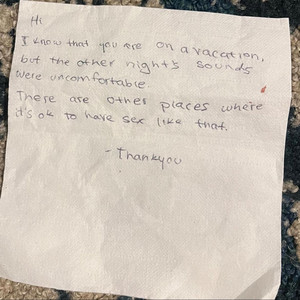 Hi
I know that you are on a vacation,
but the other night's sounds
were uncomfortable.
These are other places where
it's ok to have sex like that.
- Thankyou